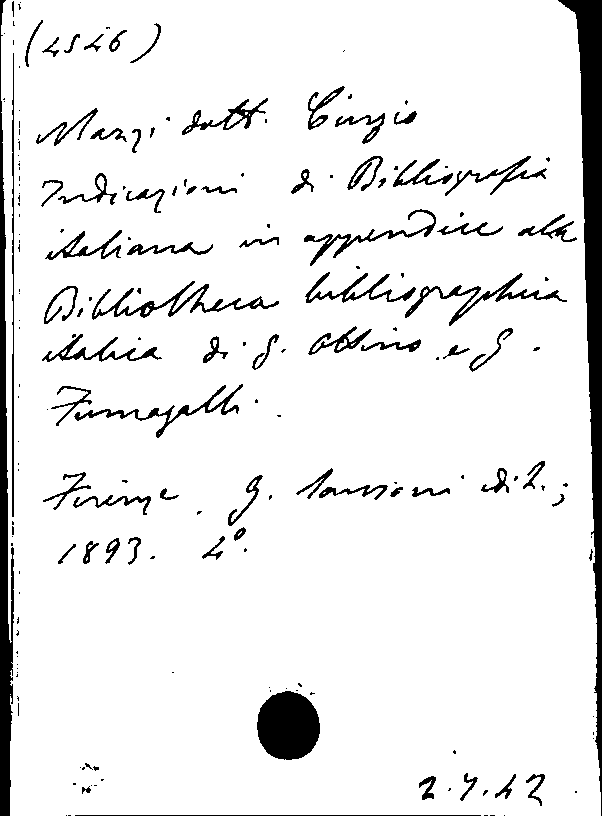 (4546)
Manzi dott. Curzio
Indicazioni di Bibliografia
italiana in appendice alla
Bibliotheca bibliographica
italica di G. Ottino e G.
Fumagalli.
Firenze. G. Sansoni edit.;
1893. 4º.
2.7.42